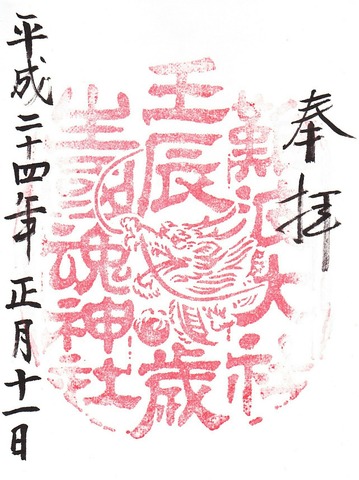 奉拝
難波大社
壬辰歳
生國魂神社
平成二十四年 正月十一日